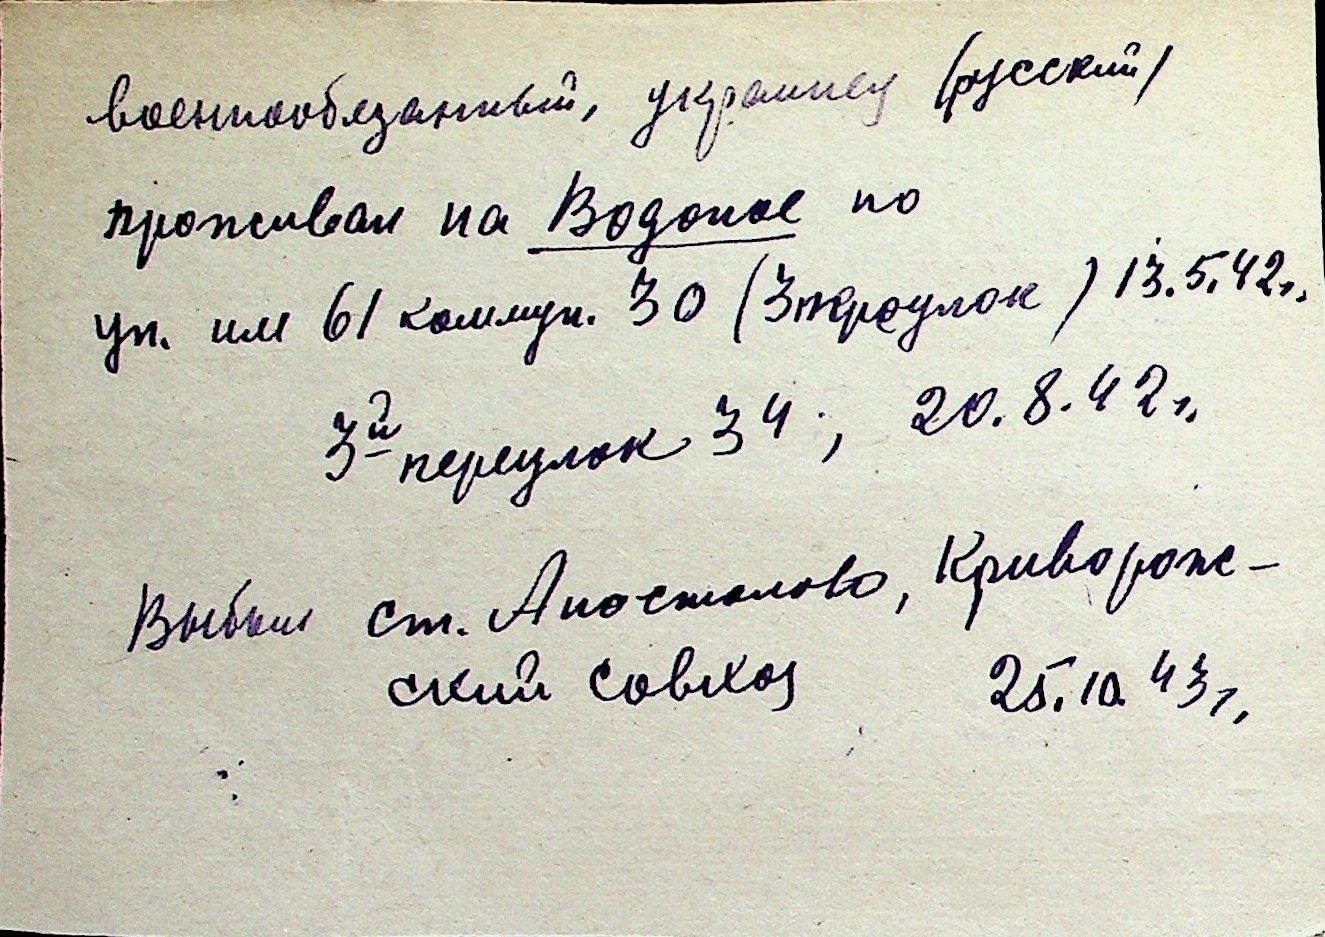 военнообязанный, украинец (русский)
проживал на Водопое по
ул. им 61 коммун. 30 (3 переулок) 13.5.42г.,
3й переулок 34, 20.8.42г.
Выбыл ст. Апостолово, Криворож-
ский совхоз 25.10.43г.